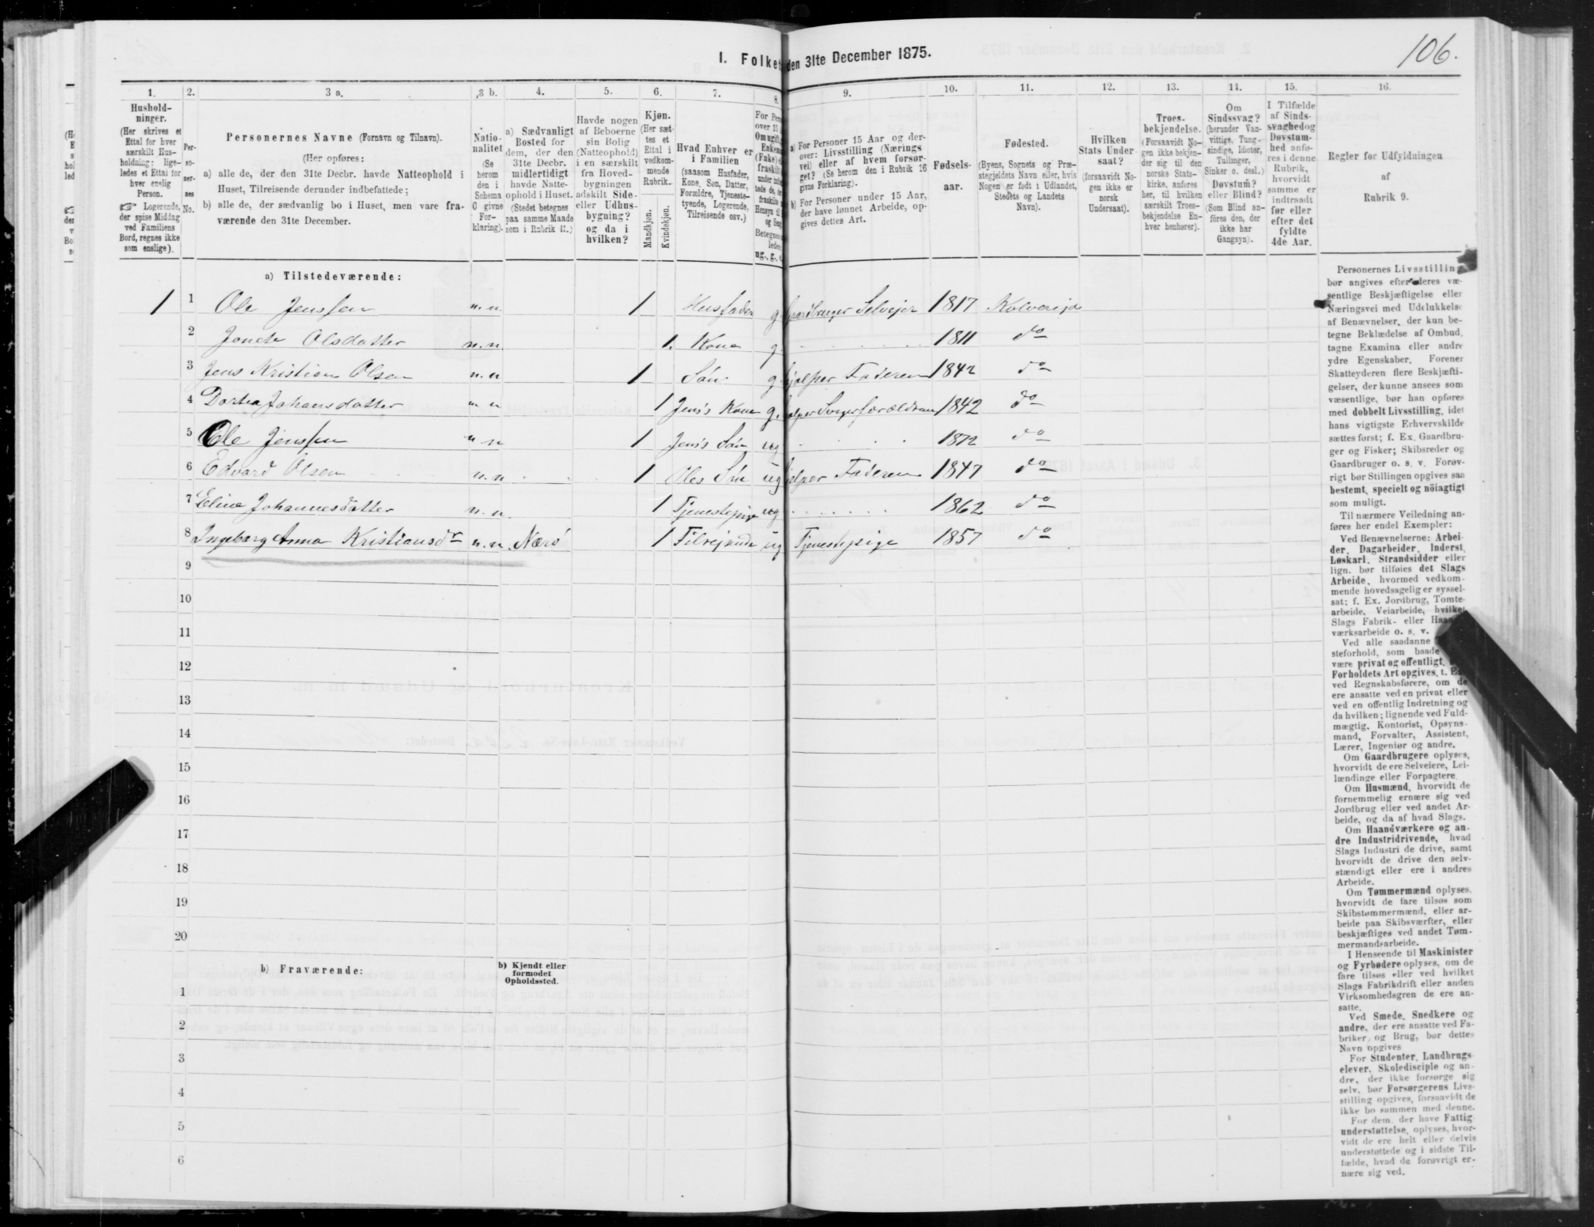 106.
I. Folke den 31te December 1875.
1. 2. 3 a. 3 b. 4. 5. 6. 7. 8. 9. 10. 11. 12. 13. 14. 15. 16.
Hushold-
ninger.
(Her skrives et
Ettal for hver
særskilt Hus-
holdning; lige-
ledes et Ettal for
hver enslig
Person.
☞ Logerende,
der spise Middag
ved Familiens
Bord, regnes ikke
som enslige).
Per-
so-
ner-
nes
No.
Personernes Navne (Fornavn og Tilnavn).
(Her opføres:
a) alle de, der den 31te Decbr. havde Natteophold i
Huset, Tilreisende derunder indbefattede;
b) alle de, der sædvanlig bo i Huset, men vare fra-
værende den 31te December.
Natio-
nalitet
(Se
herom
den i
Schema
6 givne
For-
klaring).
a) Sædvanligt
Bosted for
dem, der den
31te Decbr.
midlertidigt
havde Natte-
ophold i Huset.
(Stedet betegnes
paa samme Maade
som i Rubrik 11.)
Havde nogen
af Beboerne
sin Bolig
(Natteophold)
i en særskilt
fra Hoved-
bygningen
adskilt Side-
eller Udhus-
bygning?
og da i
hvilken?
Kjøn.
(Her sæt-
tes et
Ettal i
vedkom-
mende
Rubrik.
Mandkjøn.
Kvindekjøn.
Hvad Enhver er
i Familien
(saasom Husfader,
Kone, Søn, Datter,
Forældre, Tjeneste-
tyende, Logerende,
Tilreisende osv.)
a) For Personer 15 Aar og der-
over: Livsstilling (Nærings
vei) eller af hvem forsør-
get? (Se herom den i Rubrik 16
givne Forklaring).
b) For Personer under 15 Aar,
der have lønnet Arbeide, op-
gives dettes Art.
Fødsels-
aar.
Fødested.
(Byens, Sognets og Præ-
stegjeldets Navn eller, hvis
Nogen er født i Udlandet,
Stedets og Landets
Navn).
Hvilken
Stats Under
saat?
(forsaavidt No-
gen ikke er
norsk
Undersaat).
Troes-
bekjendelse.
(Forsaavidt No-
gen ikke bekjen-
der sig til den
norske Stats-
kirke, anføres
her, til hvilken
særskilt Troes-
bekjendelse En-
hver henhører).
Om
Sindssvag?
(herunder Van-
vittige, Tung-
sindige, Idioter,
Tullinger,
Sinker o. desl.)
Døvstum?
eller Blind?
(Som Blind an-
føres den, der
ikke har
Gangsyn).
I Tilfælde
af Sinds-
svaghed og
Døvstum-
hed anfø-
res i denne
Rubrik,
hvorvidt
samme er
indtraadt
før eller
efter det
fyldte
4de Aar.
Regler for Udfyldningen
af
Rubrik 9.
a) Tilstedeværende:
1 1 Ole Jenssen n.n 1 Husfader g Gaardbruger Selveier 1817 Kolvereid
2 Jonete Olsdatter n.n. 1. Kone g 1811 do
3 Jens Kristian Olsen n.n 1 Søn g hjælper Faderen 1842 do
4 Dortea Johansdatter n n 1 Jens's Kone g. hjælper Svigerforældrene 1842 do
5 Ole Jenssen n.n 1 Jens's Søn ug 1872 do
6 Edvard Olsen n.n 1 Oles Søn ug hjælper Faderen 1847 do
7 Eline Johannesdatter n.n. 1 Tjenestepige ug 1862 do
8 Ingeborg Anna Kristiansdr n.n. Nærø 1 Tilreisende ug Tjenestepige 1857 do
9
10
11
12
13
14
15
16
17
18
19
20
b) Fraværende:
b) Kjendt eller
formodet
Opholdssted.
1
2
3
4
5
6
Personernes Livsstilling
bør angives efter deres væ-
sentlige Beskjæftigelse eller
Næringsvei med Udelukkelse
af Benævnelser, der kun be-
tegne Beklædelse af Ombud,
tagne Examina eller andre
ydre Egenskaber. Forener
Skatteyderen flere Beskjæfti-
gelser, der kunne ansees som
væsentlige, bør han opføres
med dobbelt Livsstilling, idet
hans vigtigste Erhvervskilde
sættes først; f. Ex. Gaardbru-
ger og Fisker; Skibsreder og
Gaardbruger o. s. v. Forøv-
rigt bør Stillingen opgives saa
bestemt, specielt og nöiagtigt
som muligt.
Til nærmere Veiledning an-
føres her endel Exempler:
Ved Benævnelserne: Arbei-
der, Dagarbeider, Inderst,
Løskarl, Strandsidder eller
lign. bør tilføies det Slags
Arbeide, hvormed vedkom-
mende hovedsagelig er syssel-
sat; f. Ex. Jordbrug, Tomte-
arbeide, Veiarbeide, hvilket
Slags Fabrik- eller
værksarbeide o. s. v.
Ved alle saadanne
steforhold, som baade
være privat og offentligt,
Forholdets Art opgives, t.
ved Regnskabsførere, om de
ere ansatte ved en privat eller
ved en offentlig Indretning og
da hvilken; lignende ved Fuld-
mægtig, Kontorist, Opsyns-
mand, Forvalter, Assistent,
Lærer, Ingeniør og andre.
Om Gaardbrugere oplyses,
hvorvidt de ere Selveiere, Lei-
lændinge eller Forpagtere.
Om Husmænd, hvorvidt de
fornemmelig ernære sig ved
Jordbrug eller ved andet Ar-
beide, og da af hvad Slags.
Om Haandværkere og an-
dre Industridrivende, hvad
Slags Industri de drive, samt
hvorvidt de drive den selv-
stændigt eller ere i andres
Arbeide.
Om Tømmermænd oplyses,
hvorvidt de fare tilsøs som
Skibstømmermænd, eller ar-
beide paa Skibsværfter, eller
beskjæftiges ved andet Tøm-
mermandsarbeide.
I Henseende til Maskinister
og Fyrbødere oplyses, om de
fare tilsøs eller ved hvilket
Slags Fabrikdrift eller anden
Virksomhedsgren de ere an-
satte.
Ved Smede, Snedkere og
andre, der ere ansatte ved Fa-
briker og Brug, bør dettes
Navn opgives
For Studenter, Landbrugs-
elever, Skoledisciple og an-
dre, der ikke forsørge sig
selv, bør Forsørgerens Livs-
stilling opgives, forsaavidt de
ikke bo sammen med denne.
For dem, der have Fattig-
understøttelse, oplyses, hvor-
vidt de ere helt eller delvis
understøttede og i sidste Til-
fælde, hvad de forøvrigt er-
nære sig ved.